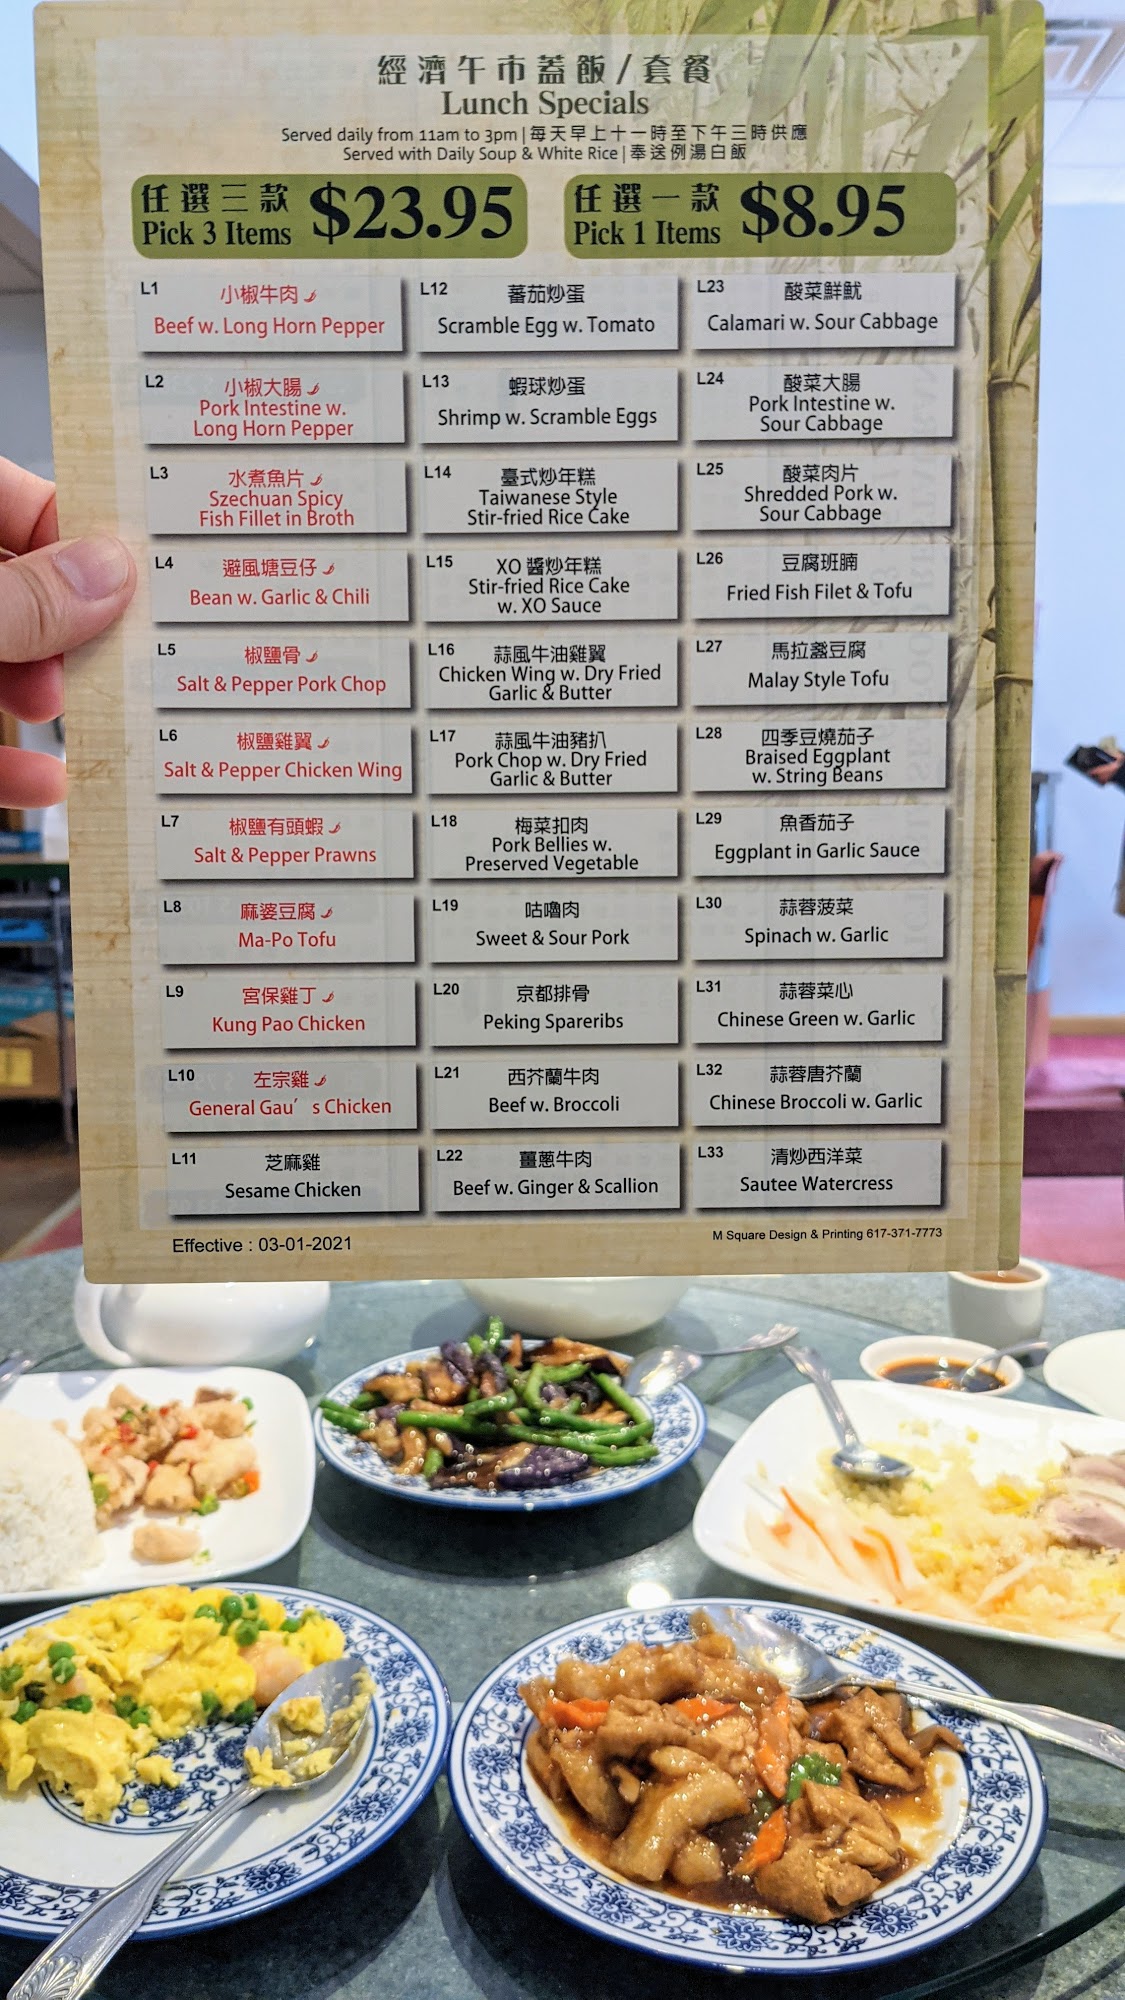 經濟午市蓋飯/套餐
Lunch Specials
Served daily from 11am to 3pm|每天早上十一時至下午三時供應
Served with Daily Soup & White Rice|奉送例湯白飯
任選三款
Pick 3 Items $23.95
任選一款
Pick 1 Items $8.95
L1 小椒牛肉
Beef w. Long Horn Pepper
L2 小椒大腸
Pork Intestine w.
Long Horn Pepper
L3 水煮魚片
Szechuan Spicy
Fish Fillet in Broth
L4 避風塘豆仔
Bean w. Garlic & Chili
L5 椒鹽骨
Salt & Pepper Pork Chop
L6 椒鹽雞翼
Salt & Pepper Chicken Wing
L7 椒鹽有頭蝦
Salt & Pepper Prawns
L8 麻婆豆腐
Ma-Po Tofu
L9 宮保雞丁
Kung Pao Chicken
L10 左宗雞
General Gau's Chicken
L11 芝麻雞
Sesame Chicken
L12 蕃茄炒蛋
Scramble Egg w. Tomato
L13 蝦球炒蛋
Shrimp w. Scramble Eggs
L14 臺式炒年糕
Taiwanese Style
Stir-fried Rice Cake
L15 XO 醬炒年糕
Stir-fried Rice Cake
w. XO Sauce
L16 蒜風牛油雞翼
Chicken Wing w. Dry Fried
Garlic & Butter
L17 蒜風牛油豬扒
Pork Chop w. Dry Fried
Garlic & Butter
L18 梅菜扣肉
Pork Bellies w.
Preserved Vegetable
L19 咕嚕肉
Sweet & Sour Pork
L20 京都排骨
Peking Spareribs
L21 西芥蘭牛肉
Beef w. Broccoli
L22 薑蔥牛肉
Beef w. Ginger & Scallion
L23 酸菜鮮魷
Calamari w. Sour Cabbage
L24 酸菜大腸
Pork Intestine w.
Sour Cabbage
L25 酸菜肉片
Shredded Pork w.
Sour Cabbage
L26 豆腐班腩
Fried Fish Filet & Tofu
L27 馬拉盞豆腐
Malay Style Tofu
L28 四季豆燒茄子
Braised Eggplant
w. String Beans
L29 魚香茄子
Eggplant in Garlic Sauce
L30 蒜蓉菠菜
Spinach w. Garlic
L31 蒜蓉菜心
Chinese Green w. Garlic
L32 蒜蓉唐芥蘭
Chinese Broccoli w. Garlic
L33 清炒西洋菜
Sautee Watercress
Effective : 03-01-2021
M Square Design & Printing 617-371-7773